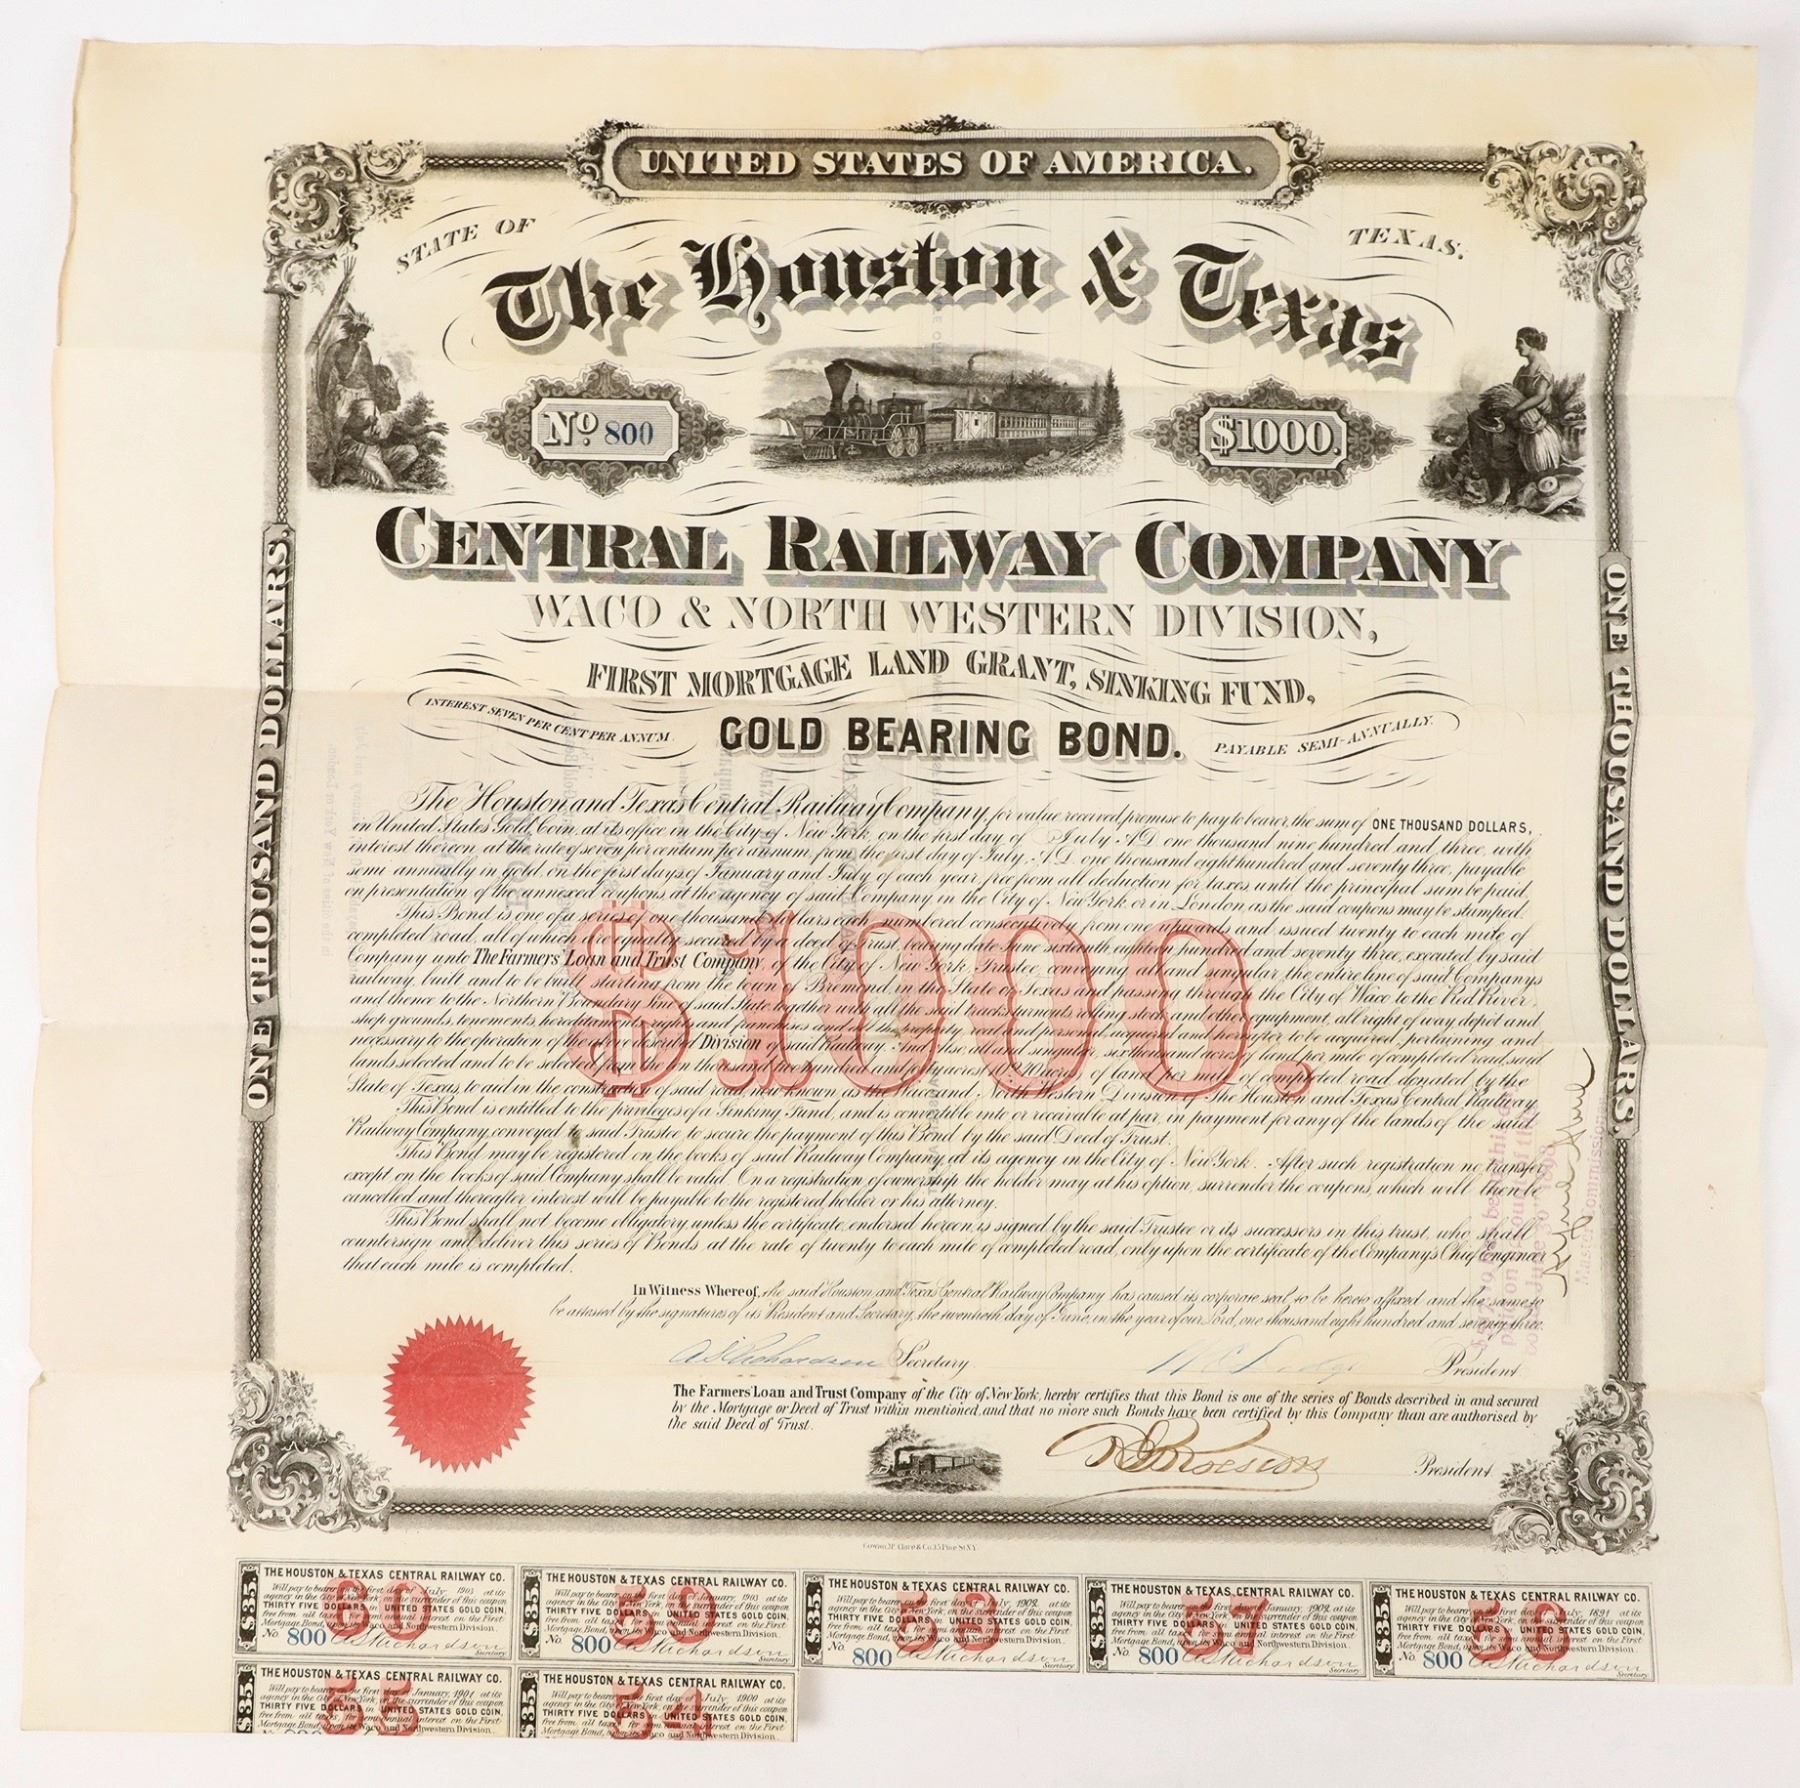 UNITED STATES OF AMERICA.
STATE OF TEXAS.
The Houston & Texas
No. 800
$1000.
CENTRAL RAILWAY COMPANY
WACO & NORTH WESTERN DIVISION,
FIRST MORTGAGE LAND GRANT, SINKING FUND,
INTEREST SEVEN PER CENT PER ANNUM
GOLD BEARING BOND.
PAYABLE SEMI-ANNUALLY.
ONE THOUSAND DOLLARS.
ONE THOUSAND DOLLARS.
The Houston and Texas Central Railway Company, for value received promise to pay to bearer, the sum of ONE THOUSAND DOLLARS,
in United States Gold Coin, at its office in the City of New York, on the first day of July A.D. one thousand nine hundred and three, with
interest thereon, at the rate of seven per centum per annum, from the first day of July, A.D. one thousand eight hundred and seventy three, payable
semi annually in gold, on the first days of January and July of each year, free from all deduction for taxes until the principal sum be paid,
on presentation of the annexed coupons, at the agency of said Company in the City of New York or in London, as the said coupons may be stamped.
This Bond is one of a series of one thousand dollars each, numbered consecutively from one upwards and issued twenty to each mile of
completed road, all of which are equally secured by a deed of Trust, bearing date June sixteenth eighteen hundred and seventy three, executed by said
Company unto The Farmers' Loan and Trust Company, of the City of New York, Trustee, conveying all and singular, the entire line of said Companys
railway, built and to be built, starting from the town of Bremond, in the State of Texas and passing through the City of Waco to the Red River,
and thence to the Northern Boundary Line of said State together with all the said tracks, turnouts, rolling stock and other equipment, all right of way depot and
shop grounds, tenements, hereditaments, rights and franchises and all the property, real and personal, acquired and hereafter to be acquired, pertaining and
necessary to the operation of the above described Division of said Railway. And also, all and singular, six thousand acres of land per mile of completed road, said
lands selected and to be selected from the ten thousand two hundred and forty acres 10.240 acres of land per mile of completed road, donated by the
State of Texas, to aid in the construction of said road, now known as the Waco and North Western Division of The Houston and Texas Central Railway.
This Bond is entitled to the privileges of a Sinking Fund, and is convertible into or receivable at par, in payment for any of the lands of the said
Railway Company, conveyed to said Trustee, to secure the payment of this Bond by the said Deed of Trust.
This Bond may be registered on the books of said Railway Company, at its agency in the City of New York. After such registration no transfer,
except on the books of said Company shall be valid. On a registration of ownership the holder may at his option, surrender the coupons, which will then be
cancelled and thereafter interest will be payable to the registered holder or his attorney.
This Bond shall not become obligatory, unless the certificate, endorsed hereon, is signed by the said Trustee or its successors in this trust, who shall
countersign and deliver this series of Bonds, at the rate of twenty to each mile of completed road, only upon the certificate of the Company's Chief Engineer
that each mile is completed.
$1000.
In Witness Whereof, the said Houston and Texas Central Railway Company has caused its corporate seal, to be hereto affixed and the same to
be attested by the signatures of its President and Secretary, the twentieth day of June, in the year of our Lord, one thousand eight hundred and seventy three.
A S Richardson Secretary
W E Dodge President
The Farmers' Loan and Trust Company of the City of New York, hereby certifies that this Bond is one of the series of Bonds described in and secured
by the Mortgage or Deed of Trust within mentioned, and that no more such Bonds have been certified by this Company than are authorised by
the said Deed of Trust.
President
THE HOUSTON & TEXAS CENTRAL RAILWAY CO.
$35.
60
Will pay to bearer on the first day of July, 1903 at its
agency in the City of New York, on the surrender of this coupon
THIRTY FIVE DOLLARS in UNITED STATES GOLD COIN,
free from all taxes, for semi annual interest on the First
Mortgage Bond, upon its Waco and Northwestern Division.
No. 800 A S Richardson
Secretary
THE HOUSTON & TEXAS CENTRAL RAILWAY CO.
$35.
59
Will pay to bearer on the first day of January, 1903 at its
agency in the City of New York, on the surrender of this coupon
THIRTY FIVE DOLLARS in UNITED STATES GOLD COIN,
free from all taxes, for semi annual interest on the First
Mortgage Bond, upon its Waco and Northwestern Division.
No. 800 A S Richardson
Secretary
THE HOUSTON & TEXAS CENTRAL RAILWAY CO.
$35.
58
Will pay to bearer on the first day of July, 1902 at its
agency in the City of New York, on the surrender of this coupon
THIRTY FIVE DOLLARS in UNITED STATES GOLD COIN,
free from all taxes, for semi annual interest on the First
Mortgage Bond, upon its Waco and Northwestern Division.
No. 800 A S Richardson
Secretary
THE HOUSTON & TEXAS CENTRAL RAILWAY CO.
$35.
57
Will pay to bearer on the first day of January, 1902 at its
agency in the City of New York, on the surrender of this coupon
THIRTY FIVE DOLLARS in UNITED STATES GOLD COIN,
free from all taxes, for semi annual interest on the First
Mortgage Bond, upon its Waco and Northwestern Division.
No. 800 A S Richardson
Secretary
THE HOUSTON & TEXAS CENTRAL RAILWAY CO.
$35.
56
Will pay to bearer on the first day of July, 1891 at its
agency in the City of New York, on the surrender of this coupon
THIRTY FIVE DOLLARS in UNITED STATES GOLD COIN,
free from all taxes, for semi annual interest on the First
Mortgage Bond, upon its Waco and Northwestern Division.
No. 800 A S Richardson
Secretary
THE HOUSTON & TEXAS CENTRAL RAILWAY CO.
$35.
55
Will pay to bearer on the first day of January, 1901 at its
agency in the City of New York, on the surrender of this coupon
THIRTY FIVE DOLLARS in UNITED STATES GOLD COIN,
free from all taxes, for semi annual interest on the First
Mortgage Bond, upon its Waco and Northwestern Division.
THE HOUSTON & TEXAS CENTRAL RAILWAY CO.
$35.
54
Will pay to bearer on the first day of July, 1900 at its
agency in the City of New York, on the surrender of this coupon
THIRTY FIVE DOLLARS in UNITED STATES GOLD COIN,
free from all taxes, for semi annual interest on the First
Mortgage Bond, upon its Waco and Northwestern Division.